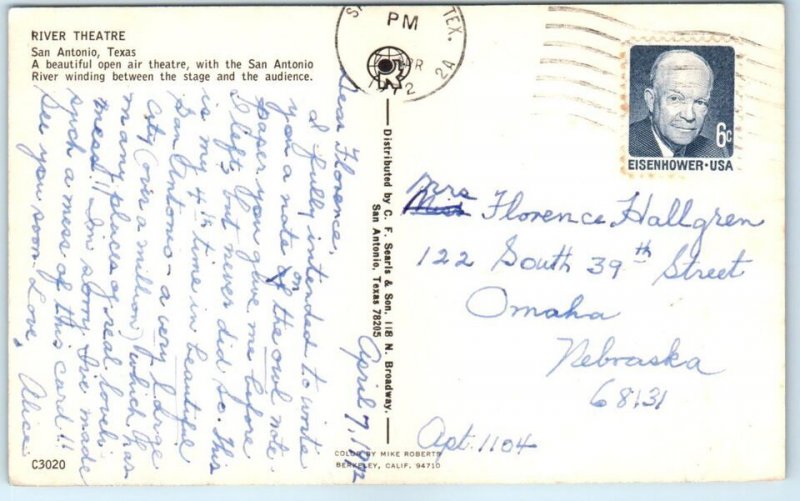 RIVER THEATRE
San Antonio, Texas
A beautiful open air theatre, with the San Antonio
River winding between the stage and the audience.
April 7, 1972
Dear Florence,
I fully intended to write
you a note on the owl note
paper you gave me before
I left, but never did so. This
is my 4th time in beautiful
San Antonio - a very large
City (over a million) which has
many places of real
mess!! Im sorry Ive made
such a mess of this card!!
See you soon. Love, Alice
C3020
Distributed by C. F. Searls & Son, 118 N. Broadway.
San Antonio, Texas 78205
COLOR BY MIKE ROBERTS
BERKELEY, CALIF. 94710
TEX.
PM
2A
6c
EISENHOWER·USA
Mrs
Miss Florence Hallgren
122 South 39th Street
Omaha
Nebraska
68131
Apt. 1104